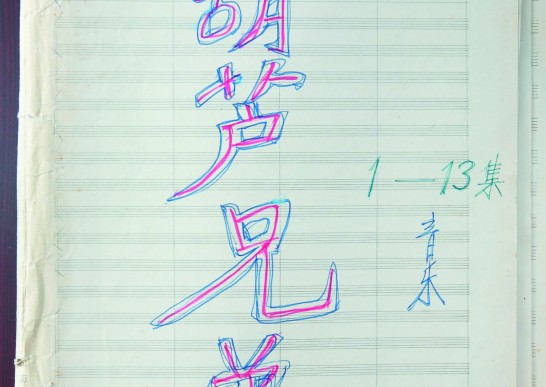 葫芦兄弟
1—13集
音乐